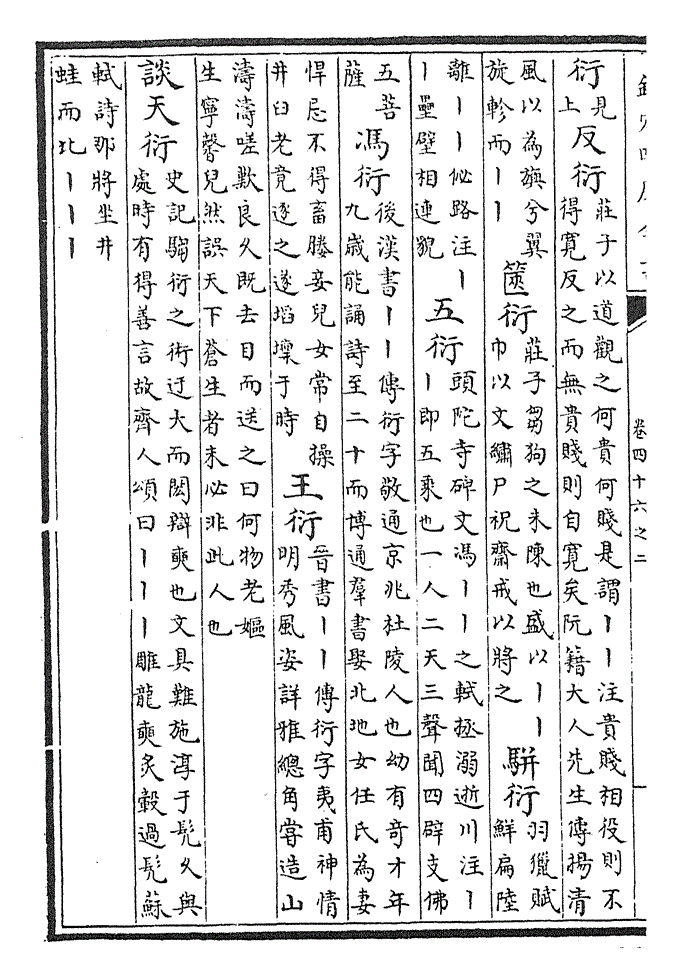 卷四十六之二
衍見上 反衍莊子以道觀之何貴何賤是謂丨丨注貴賤相役則不得寛反之而無貴賤則自寛矣阮籍大人先生傳揚清
風以為旟兮翼旋軫而丨丨 篋衍莊子芻狗之未陳也盛以丨丨巾以文繡尸祝齋戒以將之 駢衍羽獵賦鮮扁陸
離丨丨佖路注丨丨壘壁相連貌 五衍頭陀寺碑文馮丨丨之軾拯溺逝川注丨丨即五乘也一人二天三聲聞四辟支佛
五菩薩 馮衍後漢書丨丨傳衍字敬通京兆杜陵人也幼有奇才年九歲能誦詩至二十而博通羣書娶北地女任氏為妻
悍忌不得畜媵妾兒女常自操井臼老竟逐之遂埳壈于時 王衍晉書丨丨傳衍字夷甫神情明秀風姿詳雅總角嘗造山
濤濤嗟歎良久既去目而送之曰何物老嫗生寧馨兒然誤天下蒼生者未必非此人也
談天衍史記騶衍之術迂大而閎辯奭也文具難施淳于髡久與處時有得善言故齊人頌曰丨丨丨雕龍奭炙轂過髡蘇
軾詩那將坐井蛙而比丨丨丨